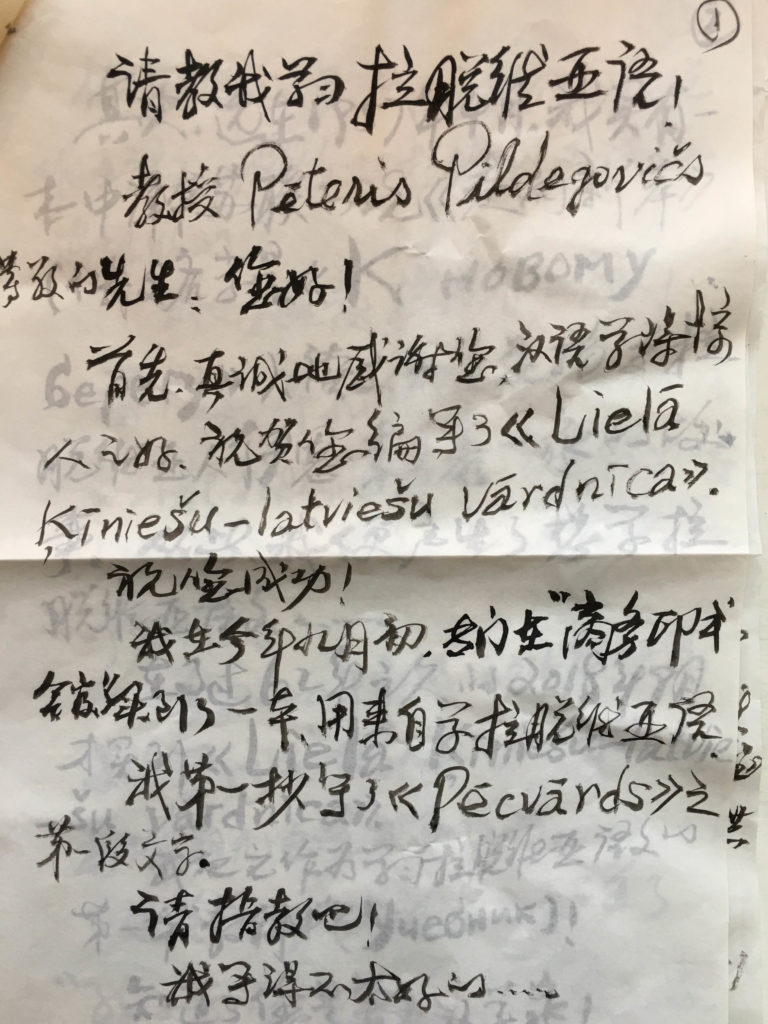 ①
请教我学习拉脱维亚语！
教授 Pēteris Pildegovičs
尊敬的先生：您好！
首先、真诚地感谢您，汉语学
人之好、祝贺您编写了《Lielā
Ķīniešu-latviešu vārdnīca》.
祝您成功！
我在今年九月初，专门在“商务印书
馆”买到了一本、用来自学拉脱维亚语.
我第一抄写了《Pēcvārds》之
第一段文字。
请指教吧！
我写得不太好的......